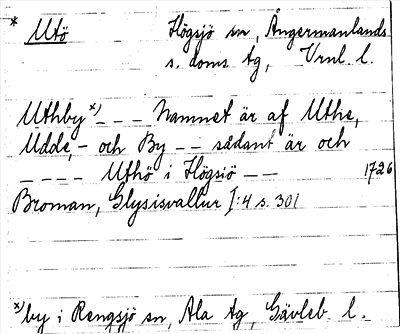 * Utö Högsjö sn, Ångermanlands
s. doms. tg, Vrnl. l.
Uthby *) _ _ _ Namnet är af Uthe,
Udde, - och By _ _ sådant är och
_ _ _ _ Uthö i Högsiö _ _ 1726
Broman, Glysisvallur I:4 s. 301
*) by i Rengsjö sn, Ala tg, Gävleb. l.